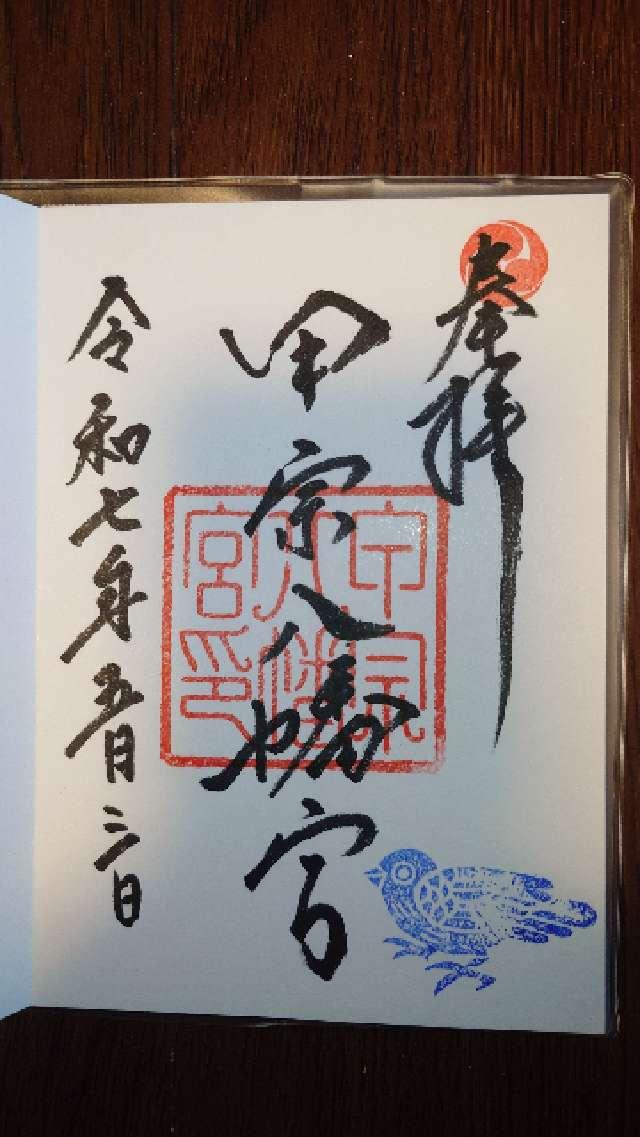 奉拝
甲宗八幡宮
甲宗八幡宮印
令和七年五月三日